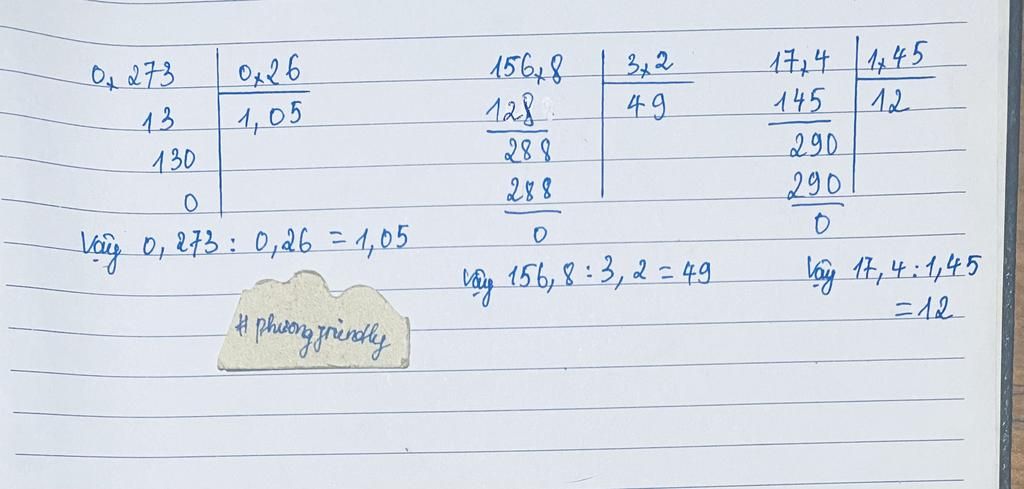 0,273 | 0,26
13 | 1,05
130
0
Vậy 0,273 : 0,26 = 1,05
156,8 | 3,2
128 | 49
288
288
0
Vậy 156,8 : 3,2 = 49
17,4 | 1,45
145 | 12
290
290
0
Vậy 17,4 : 1,45
= 12